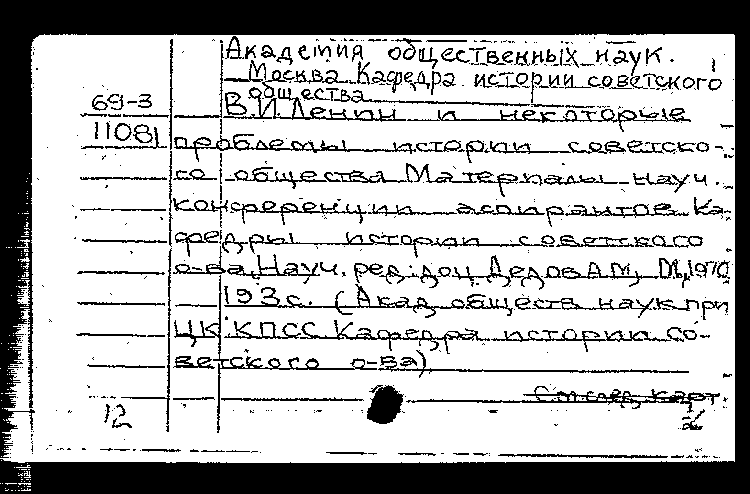 Академия общественных наук.
Москва Кафедра истории советского
общества
69-3
11081
В.И.Ленин и некоторые
проблемы истории советско-
го общества Материалы науч.
конференции аспирантов Ка-
федры истории советского
о-ва, Науч. ред: доц Дедов А М, М, 1970
193с. (Акад обществ наук при
ЦК КПСС Кафедра истории со-
ветского о-ва)
См след карт.
12